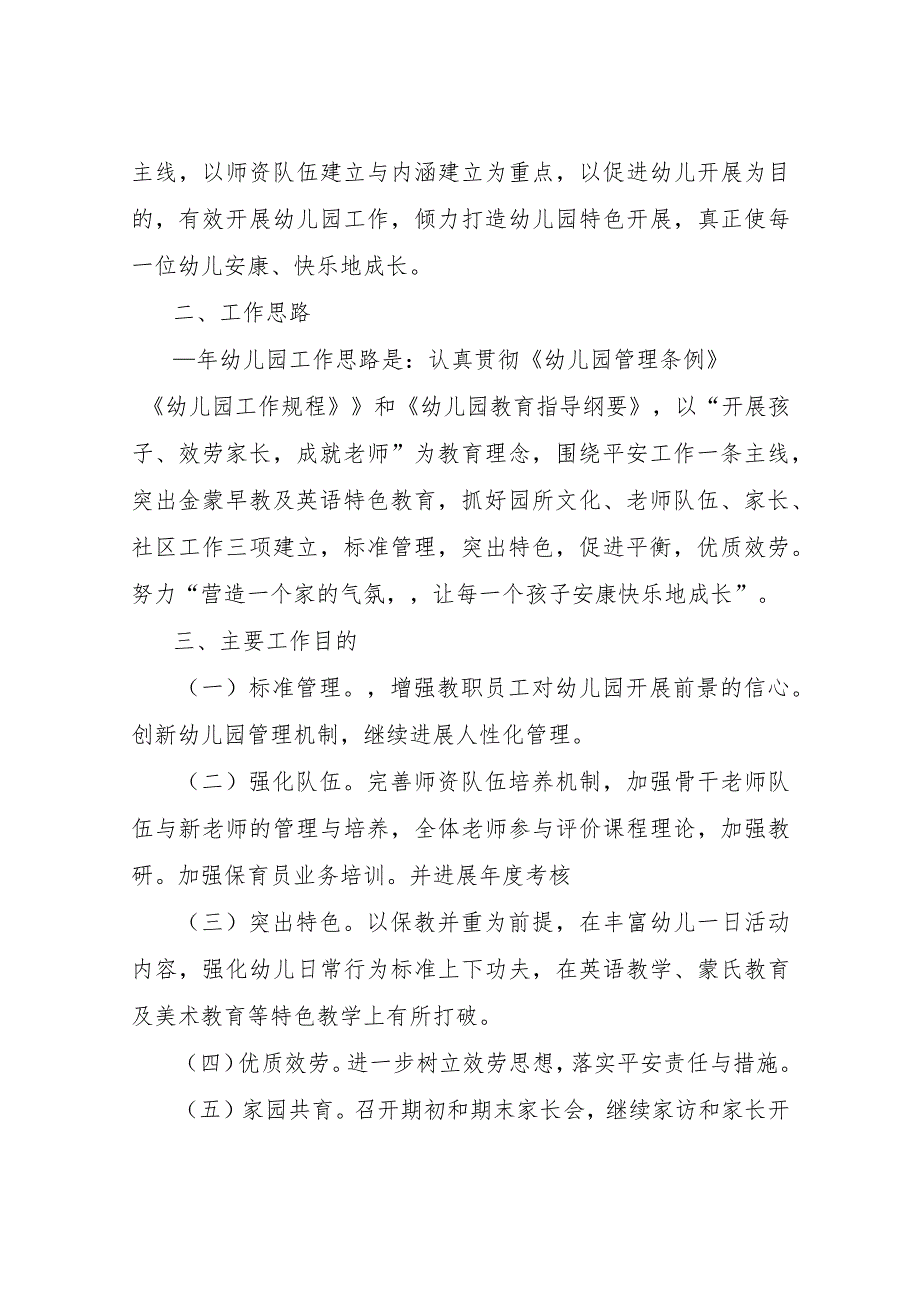 主线，以师资队伍建立与内涵建立为重点，以促进幼儿开展为目
的，有效开展幼儿园工作，倾力打造幼儿园特色开展，真正使每
一位幼儿安康、快乐地成长。
二、工作思路
—年幼儿园工作思路是：认真贯彻《幼儿园管理条例》
《幼儿园工作规程》》和《幼儿园教育指导纲要》，以“开展孩
子、效劳家长，成就老师”为教育理念，围绕平安工作一条主线，
突出金蒙早教及英语特色教育，抓好园所文化、老师队伍、家长、
社区工作三项建立，标准管理，突出特色，促进平衡，优质效劳。
努力“营造一个家的气氛，，让每一个孩子安康快乐地成长”。
三、主要工作目的
（一）标准管理。，增强教职员工对幼儿园开展前景的信心。
创新幼儿园管理机制，继续进展人性化管理。
（二）强化队伍。完善师资队伍培养机制，加强骨干老师队
伍与新老师的管理与培养，全体老师参与评价课程理论，加强教
研。加强保育员业务培训。并进展年度考核
（三）突出特色。以保教并重为前提，在丰富幼儿一日活动
内容，强化幼儿日常行为标准上下功夫，在英语教学、蒙氏教育
及美术教育等特色教学上有所打破。
（四）优质效劳。进一步树立效劳思想，落实平安责任与措施。
（五）家园共育。召开期初和期末家长会，继续家访和家长开